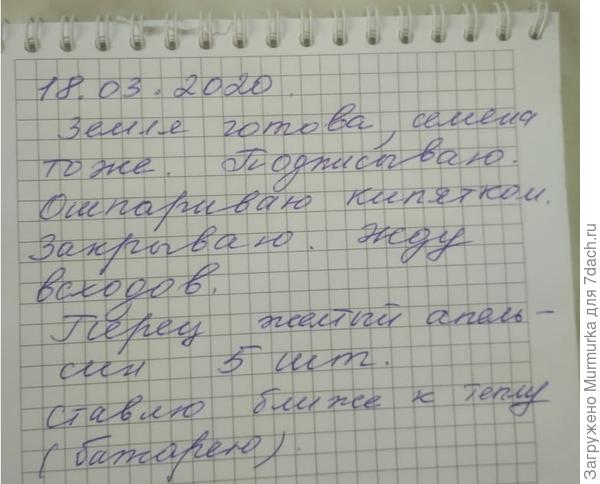 18.03.2020.
Земля готова, семена
тоже. Подписываю.
Ошпариваю кипятком.
Закрываю. Жду
всходов.
Перец желтый апель-
син 5 шт.
ставлю ближе к теплу
(батарею).
Загружено Murmurka для 7dach.ru